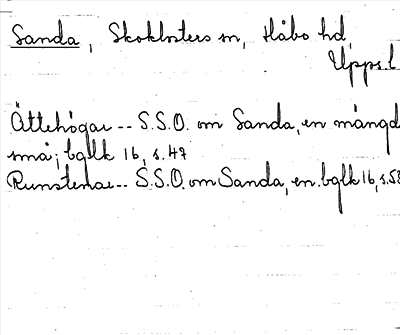 Sanda, Skoklosters sn, Håbo hd
Upps. l
Ättehögar -- S.S.O. om Sanda, en mängd
små; bglk 16, s. 47
Runstenar -- S.S.O. om Sanda, en. bglk 16, s. 58